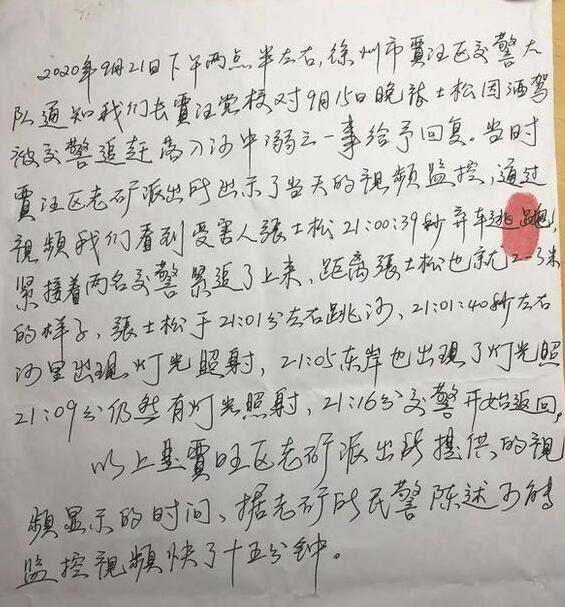 2020年9月21日下午两点半左右,徐州市贾汪区交警大
队通知我们去贾汪党校对9月15日晚张士松因酒驾
被交警追赶落入河中溺亡一事给予回复。当时
贾汪区老矿派出所出示了当天的视频监控,通过
视频我们看到受害人張士松21:00:39秒弃车逃跑,
紧接着两名交警紧追了上来,距离張士松也就2-3米
的样子,張士松于21:01分左右跳河,21:01:40秒左右
河里出现灯光照射,21:05东岸也出現了灯光照
21:09分仍然有灯光照射,21:16分交警开始返回,
以上是賈旺区老矿派出所提供的视
频显示的时间、据老矿所民警陈述
监控視频快了十五分钟。